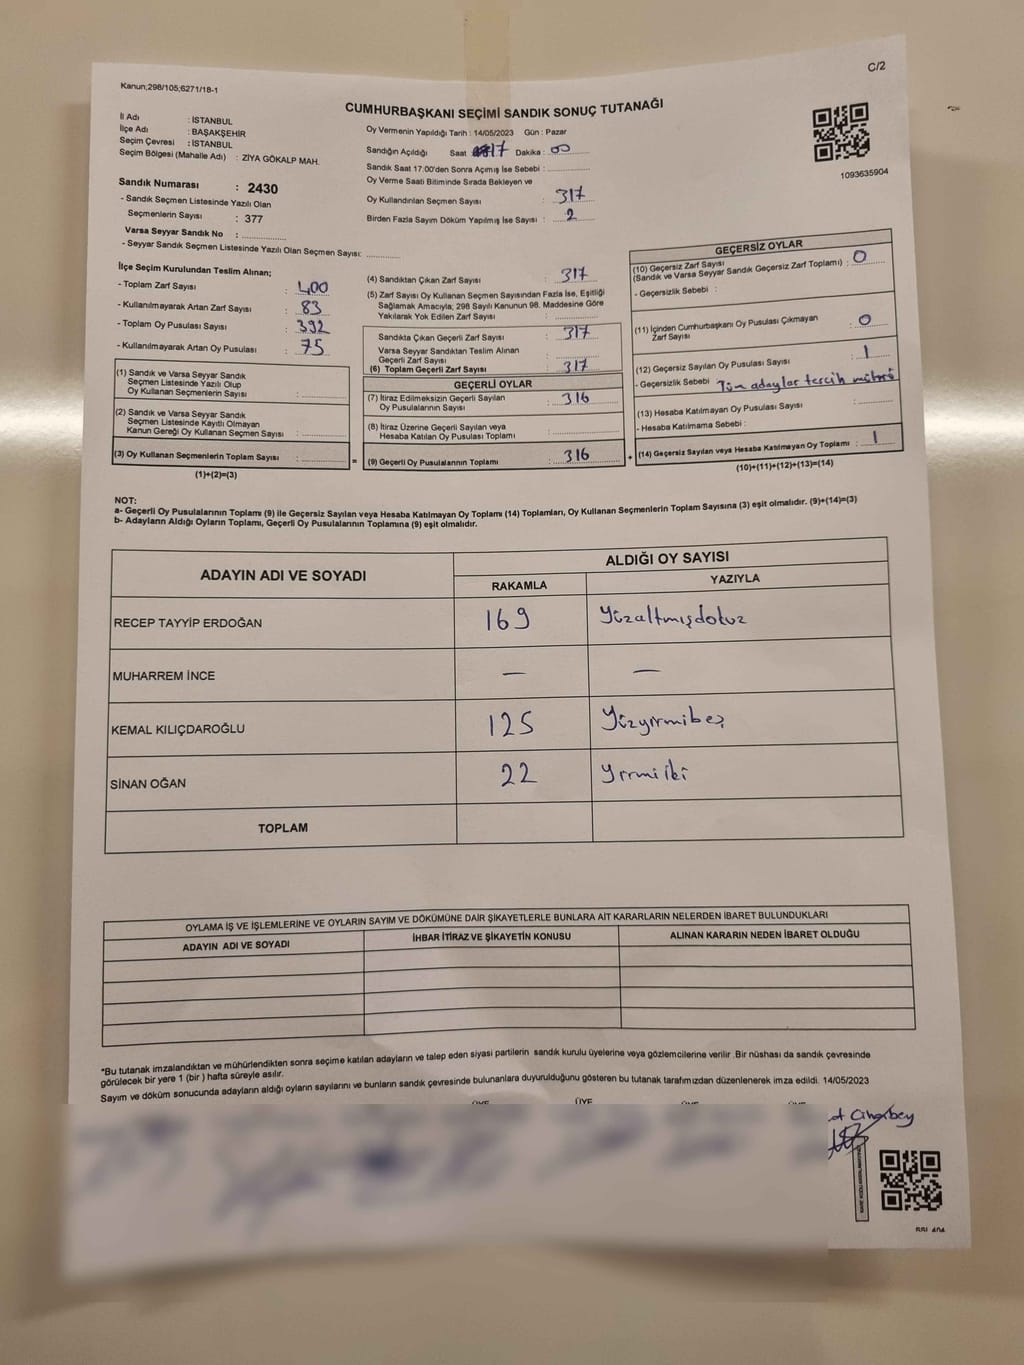 C/2
Kanun;298/105;6271/18-1
CUMHURBAŞKANI SEÇİMİ SANDIK SONUÇ TUTANAĞI
İl Adı : İSTANBUL
İlçe Adı : BAŞAKŞEHİR
Seçim Çevresi : İSTANBUL
Seçim Bölgesi (Mahalle Adı) : ZİYA GÖKALP MAH.
Sandık Numarası : 2430
- Sandık Seçmen Listesinde Yazılı Olan
Seçmenlerin Sayısı : 377
Varsa Seyyar Sandık No :
- Seyyar Sandık Seçmen Listesinde Yazılı Olan Seçmen Sayısı:
Oy Vermenin Yapıldığı Tarih : 14/05/2023 Gün : Pazar
Sandığın Açıldığı Saat 17 Dakika : 00
Sandık Saat 17:00'den Sonra Açımış İse Sebebi :
Oy Verme Saati Bitiminde Sırada Bekleyen ve
Oy Kullandırılan Seçmen Sayısı : 317
Birden Fazla Sayım Döküm Yapılmış İse Sayısı : 2
1093635904
İlçe Seçim Kurulundan Teslim Alınan;
- Toplam Zarf Sayısı : 400
- Kullanılmayarak Artan Zarf Sayısı : 83
- Toplam Oy Pusulası Sayısı : 392
- Kullanılmayarak Artan Oy Pusulası : 75
(1) Sandık ve Varsa Seyyar Sandık
Seçmen Listesinde Yazılı Olup
Oy Kullanan Seçmen Sayısı :
(2) Sandık ve Varsa Seyyar Sandık
Seçmen Listesinde Kayıtlı Olmayan
Kanun Gereği Oy Kullanan Seçmen Sayısı :
(3) Oy Kullanan Seçmenlerin Toplam Sayısı :
(1)+(2)=(3)
(4) Sandıktan Çıkan Zarf Sayısı : 317
(5) Zarf Sayısı Oy Kullanan Seçmen Sayısından Fazla İse, Eşitliği
Sağlamak Amacıyla; 298 Sayılı Kanunun 98. Maddesine Göre
Yakılarak Yok Edilen Zarf Sayısı :
Sandıkta Çıkan Geçerli Zarf Sayısı : 317
Varsa Seyyar Sandıktan Teslim Alınan
Geçerli Zarf Sayısı :
(6) Toplam Geçerli Zarf Sayısı : 317
GEÇERLİ OYLAR
(7) İtiraz Edilmeksizin Geçerli Sayılan
Oy Pusulalarının Sayısı : 316
(8) İtiraz Üzerine Geçerli Sayılan veya
Hesaba Katılan Oy Pusulası Toplamı :
= (9) Geçerli Oy Pusulalarının Toplamı : 316 +
GEÇERSİZ OYLAR
(10) Geçersiz Zarf Sayısı
(Sandık ve Varsa Seyyar Sandık Geçersiz Zarf Toplamı) : 0
- Geçersizlik Sebebi :
(11) İçinden Cumhurbaşkanı Oy Pusulası Çıkmayan
Zarf Sayısı : 0
(12) Geçersiz Sayılan Oy Pusulası Sayısı : 1
- Geçersizlik Sebebi Tüm adaylar tercih mührü
(13) Hesaba Katılmayan Oy Pusulası Sayısı :
- Hesaba Katılmama Sebebi :
(14) Geçersiz Sayılan veya Hesaba Katılmayan Oy Toplamı : 1
(10)+(11)+(12)+(13)=(14)
NOT:
a- Geçerli Oy Pusulalarının Toplamı (9) ile Geçersiz Sayılan veya Hesaba Katılmayan Oy Toplamı (14) Toplamları, Oy Kullanan Seçmenlerin Toplam Sayısına (3) eşit olmalıdır. (9)+(14)=(3)
b- Adayların Aldığı Oyların Toplamı, Geçerli Oy Pusulalarının Toplamına (9) eşit olmalıdır.
ADAYIN ADI VE SOYADI ALDIĞI OY SAYISI
RAKAMLA YAZIYLA
RECEP TAYYİP ERDOĞAN 169 Yüzaltmışdokuz
MUHARREM İNCE — —
KEMAL KILIÇDAROĞLU 125 Yüzyirmibeş
SİNAN OĞAN 22 Yirmiiki
TOPLAM
OYLAMA İŞ VE İŞLEMLERİNE VE OYLARIN SAYIM VE DÖKÜMÜNE DAİR ŞİKAYETLERLE BUNLARA AİT KARARLARIN NELERDEN İBARET BULUNDUKLARI
ADAYIN ADI VE SOYADI İHBAR İTİRAZ VE ŞİKAYETİN KONUSU ALINAN KARARIN NEDEN İBARET OLDUĞU
*Bu tutanak imzalandıktan ve mühürlendikten sonra seçime katılan adayların ve talep eden siyasi partilerin sandık kurulu üyelerine veya gözlemcilerine verilir .Bir nüshası da sandık çevresinde
görülecek bir yere 1 (bir ) hafta süreyle asılır.
Sayım ve döküm sonucunda adayların aldığı oyların sayılarını ve bunların sandık çevresinde bulunanlara duyurulduğunu gösteren bu tutanak tarafımızdan düzenlenerek imza edildi. 14/05/2023
ÜYE